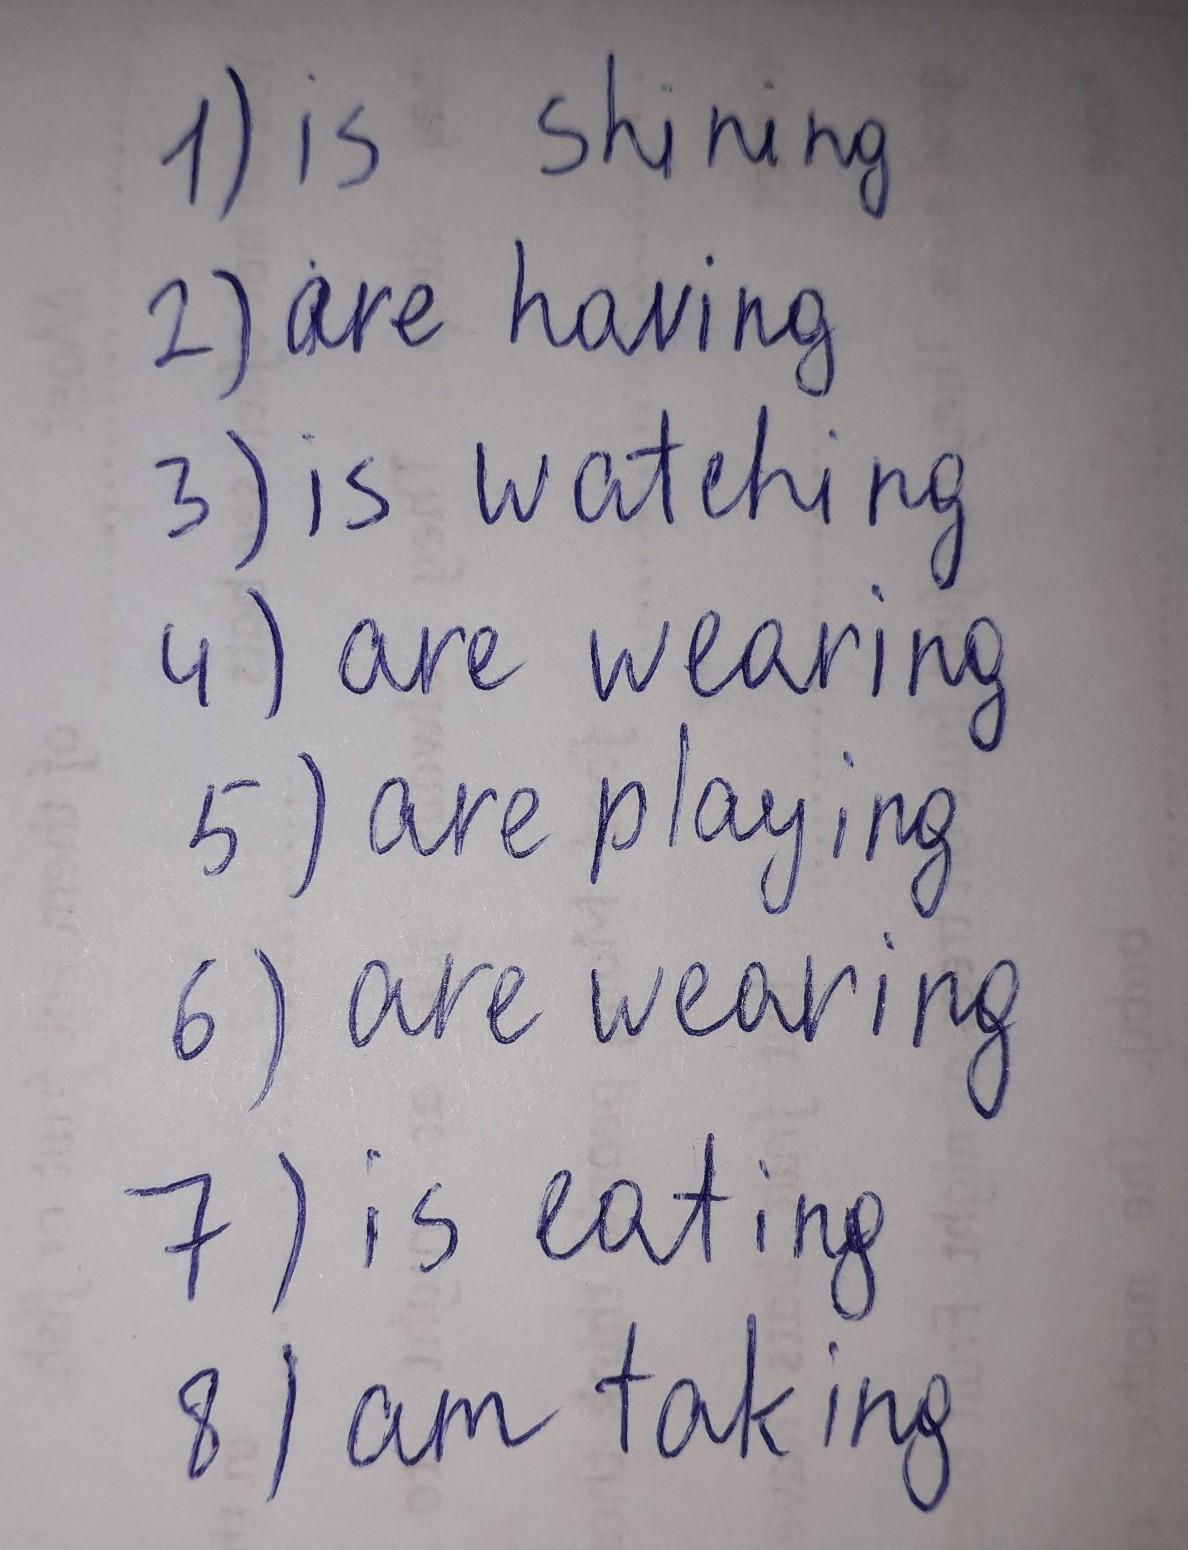 1) is shining
2) are having
3) is watching
4) are wearing
5) are playing
6) are wearing
7) is eating
8) am taking